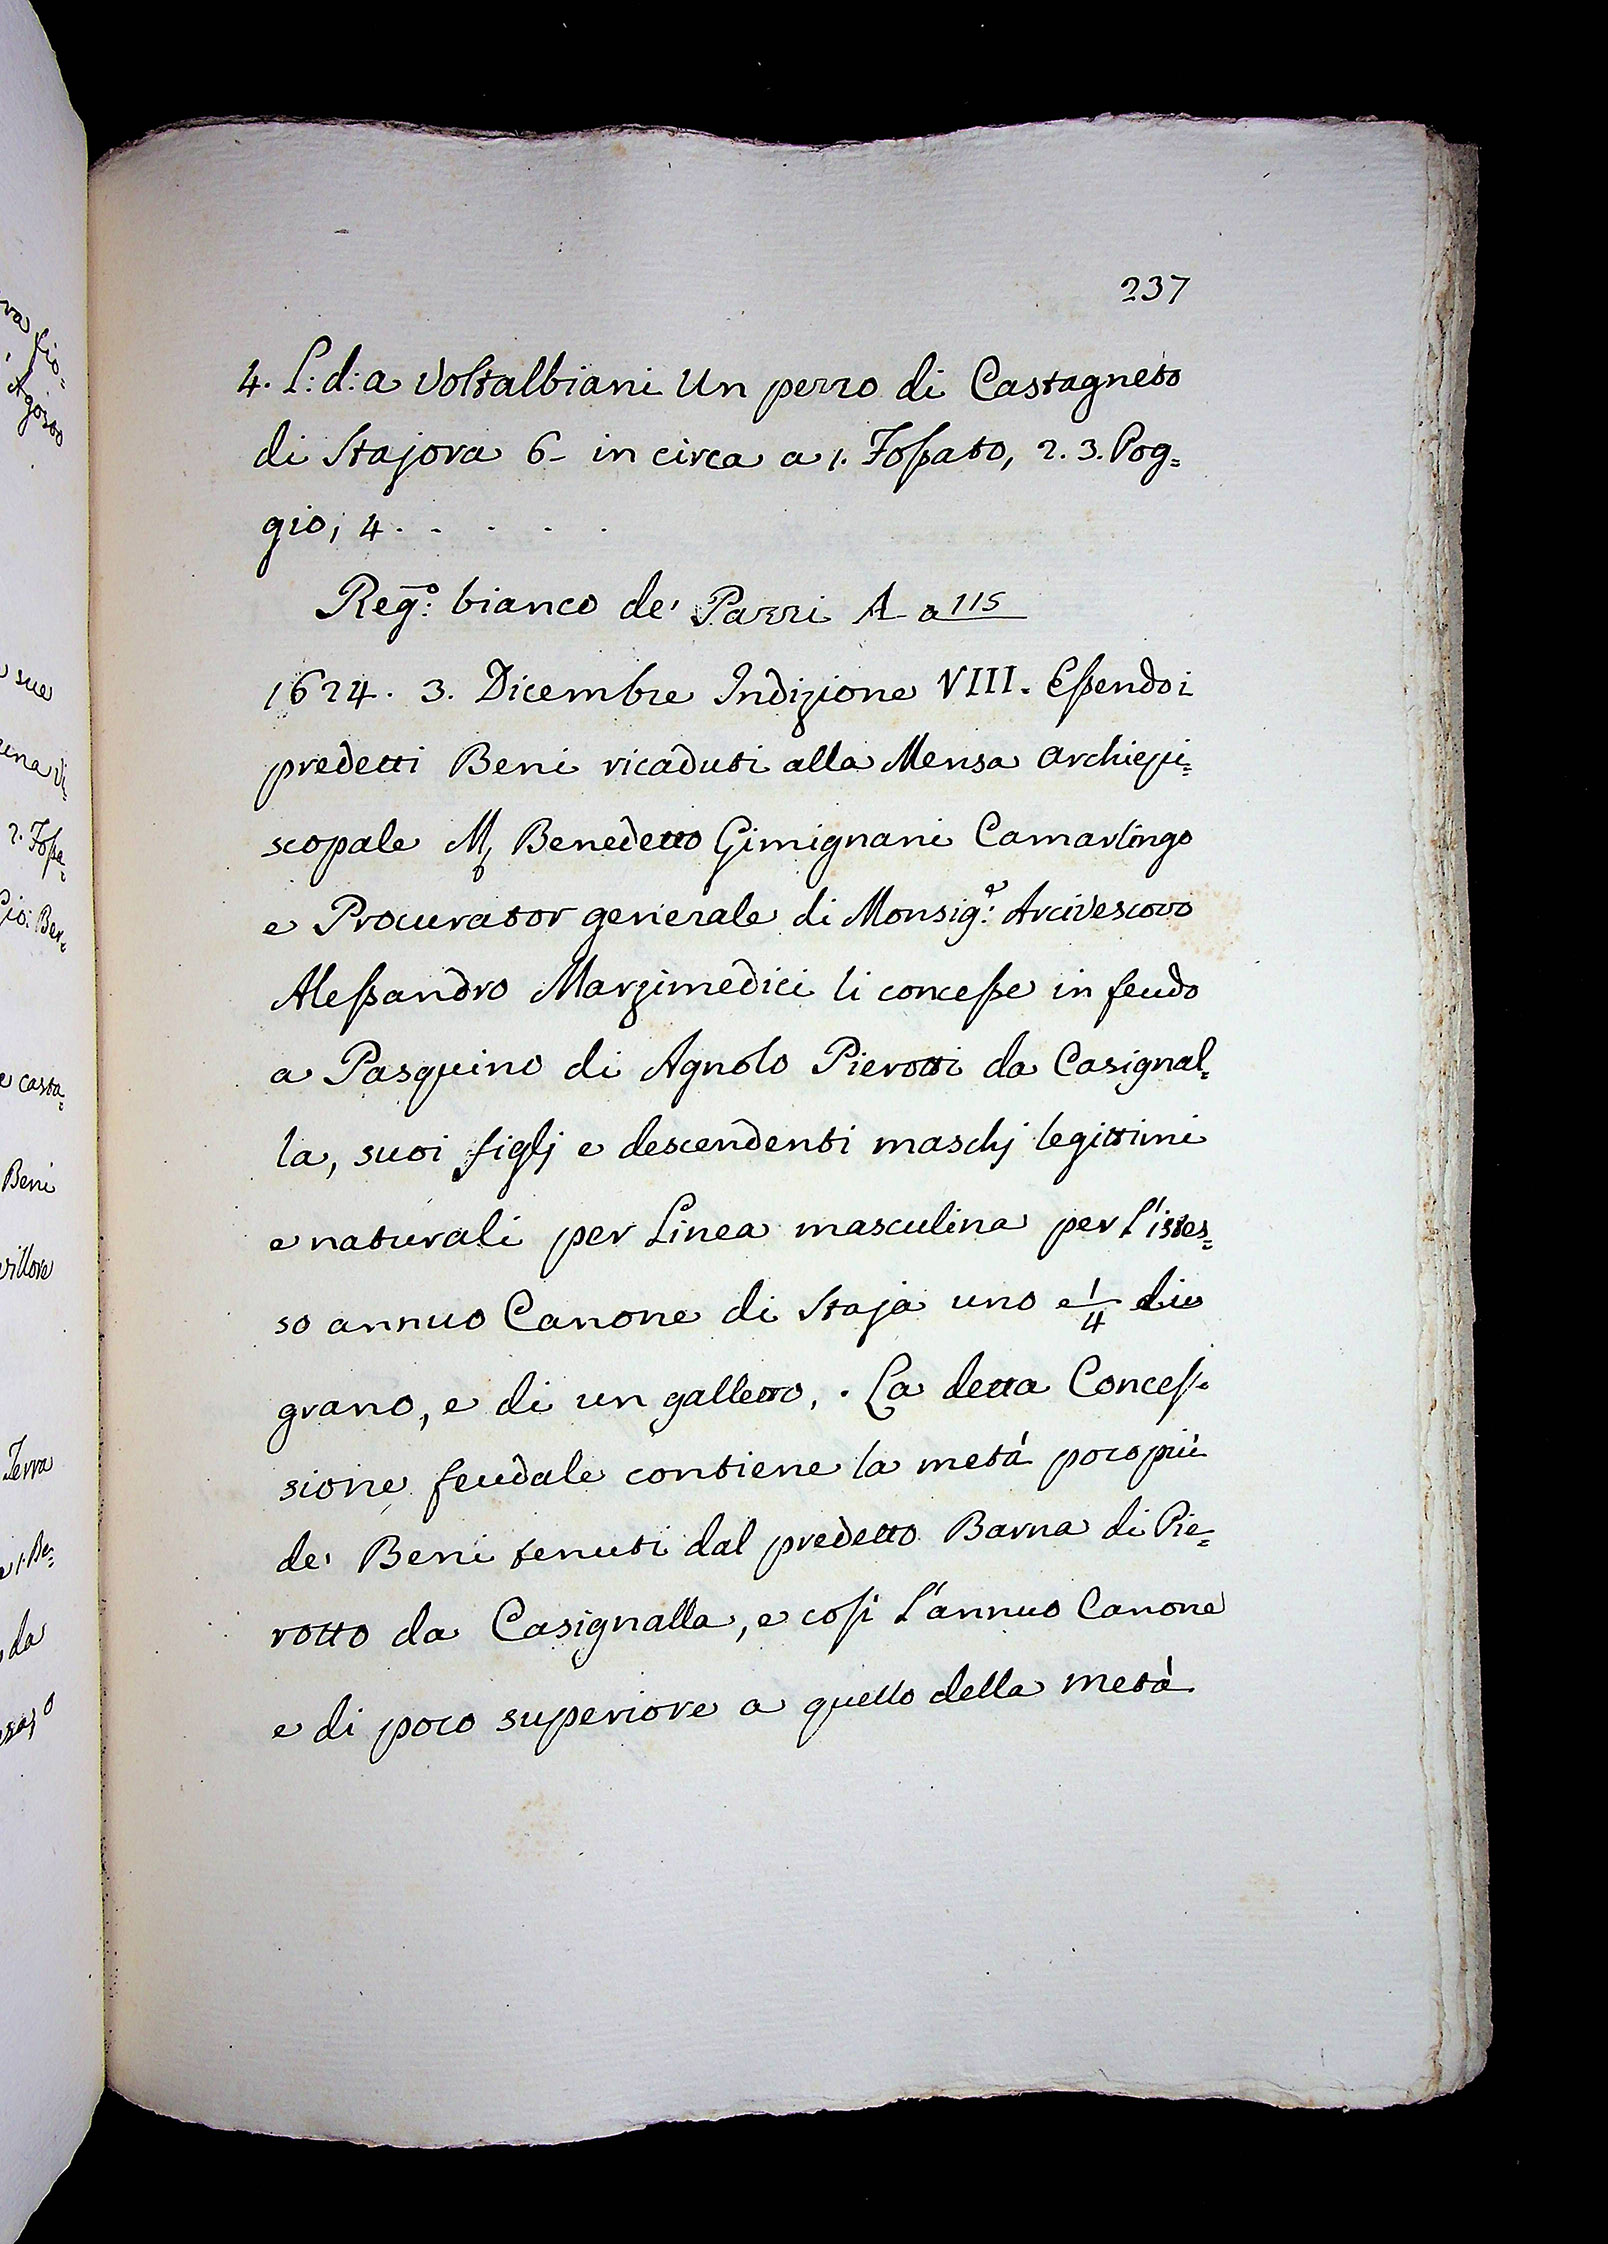 237
4. L: d: a Voltalbiani Un pezzo di Castagneto
di Stajora 6- in circa a 1. Fossato, 2. 3. Pog=
gio, 4. - - - -
Reg:º bianco de' Pazzi A a 115
1624. 3. Dicembre Indizione VIII. Essendo i
predetti Beni ricaduti alla Mensa archiepi=
scopale M. Benedetto Gimignani Camarlingo
e Procurator generale di Monsig:r Arcivescovo
Alessandro Marzimedici li concesse in feudo
a Pasquino di Agnolo Pierotti da Casignal=
la, suoi figlj e descendenti maschj legittimi
e naturali per Linea masculina per l'istes=
so annuo Canone di Staja uno e 1/4 di
grano, e di un galletto, . La detta Conces=
sione feudale contiene la metà poco più
de' Beni tenuti dal predetto Barna di Pie=
rotto da Casignalla, e così l'annuo Canone
e di poco superiore a quello della metà
sue
Agosto
Beni
Terra
da